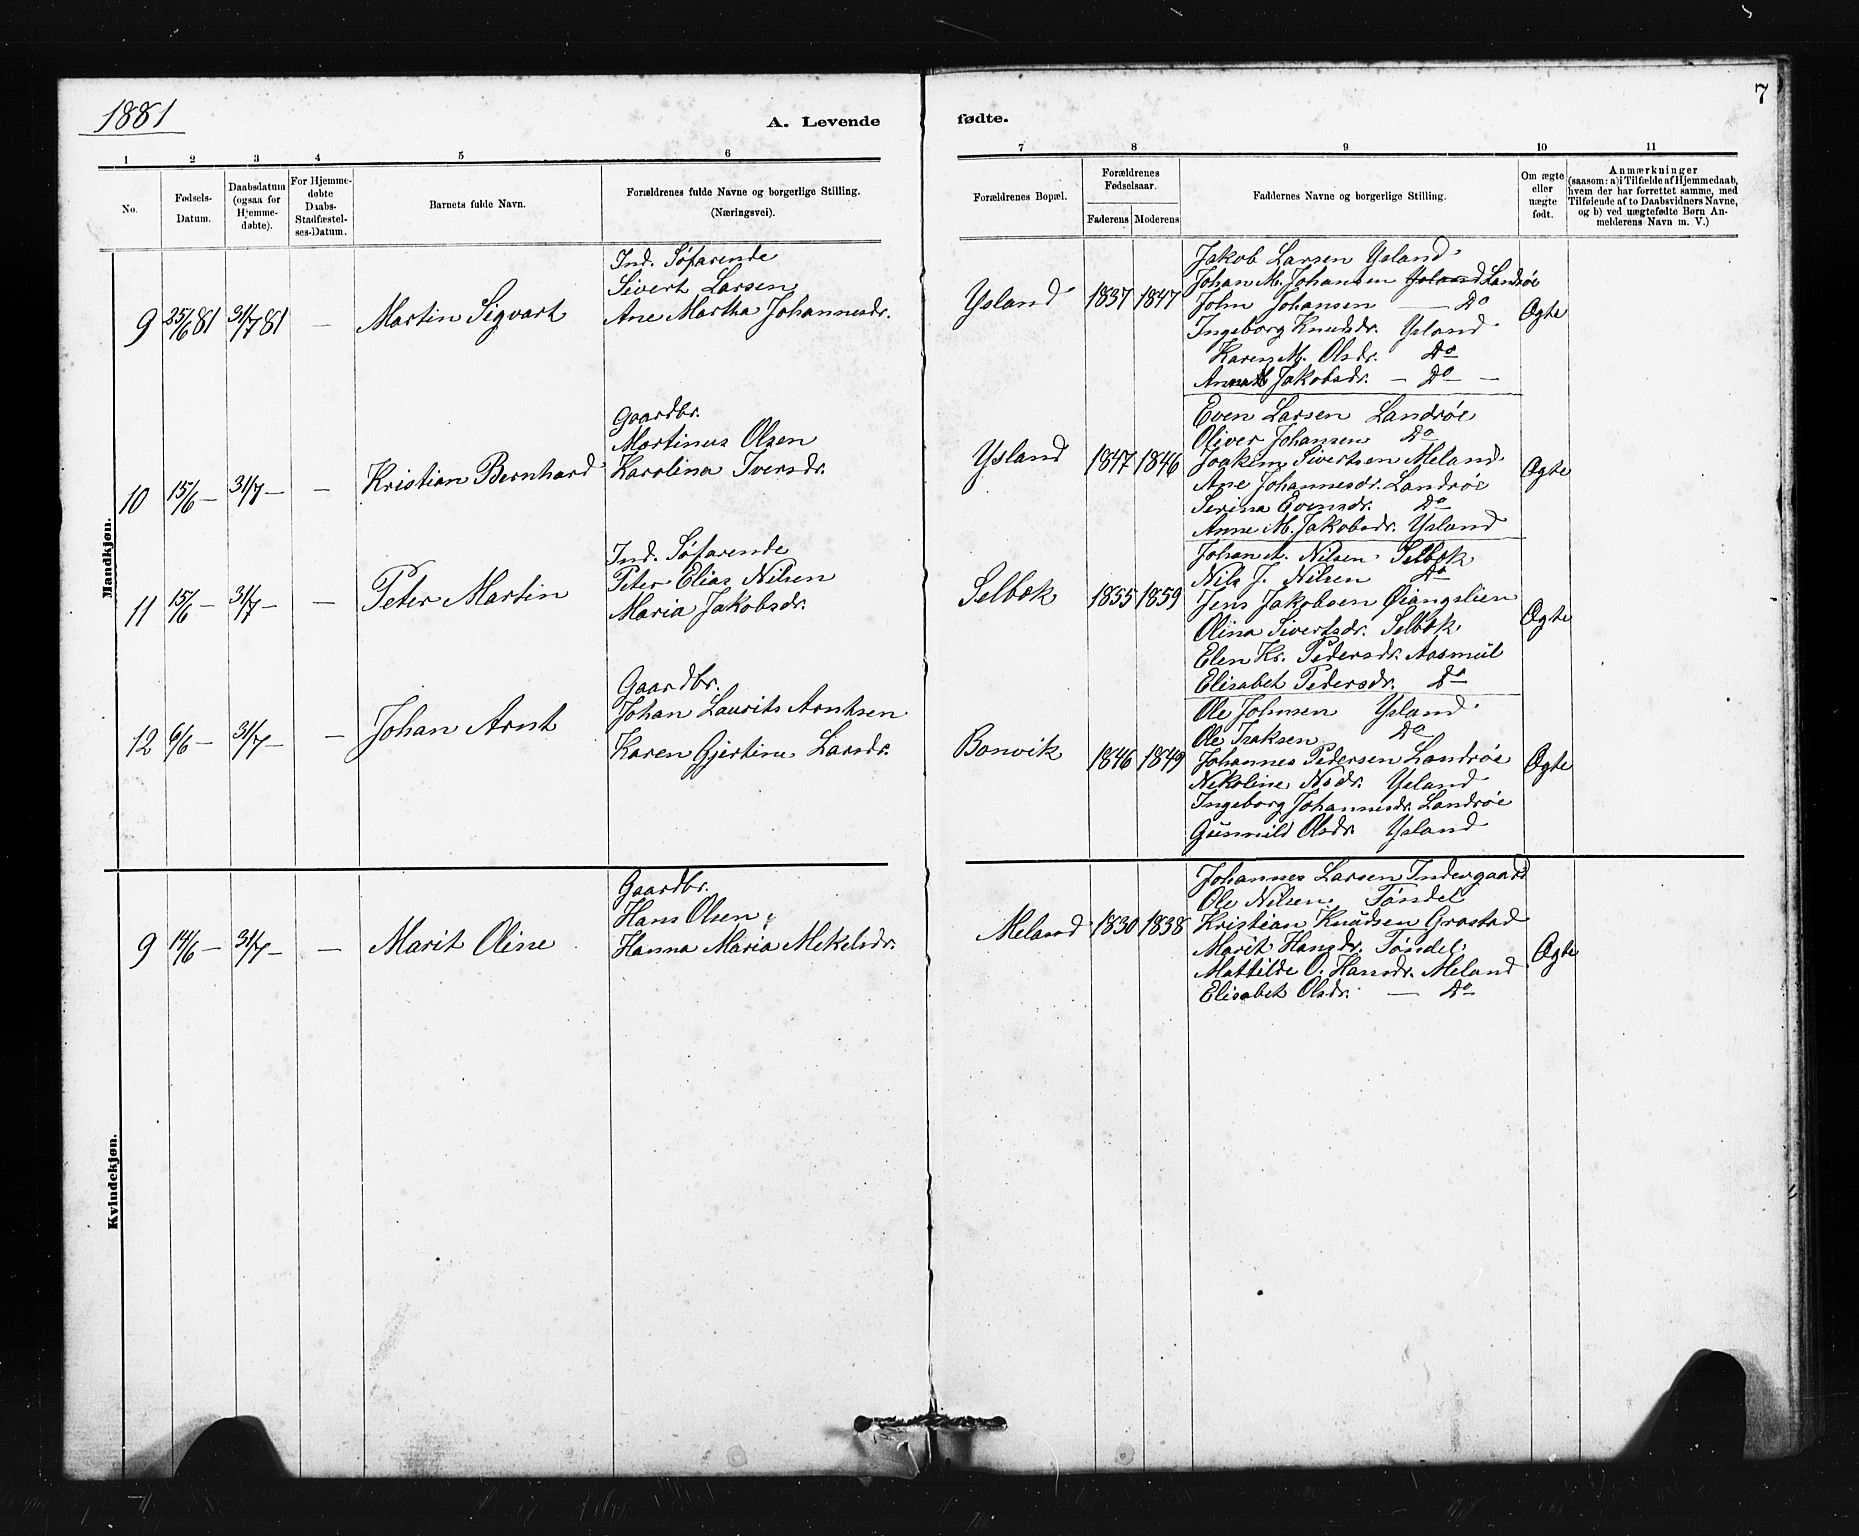 1881
7
A. Levende fødte.
1 2 3 4 5 6 7 8 9 10 11
No.
Fødsels-
Datum.
Daabsdatum
(ogsaa for
Hjemme-
døbte).
For Hjemme-
døbte
Daabs-
Stadfæstel-
ses-Datum.
Barnets fulde Navn.
Forældrenes fulde Navne og borgerlige Stilling.
(Næringsvei).
Forældrenes Bopæl.
Forældrenes
Fødselsaar.
Faderens Moderens
Faddernes Navne og borgerlige Stilling.
Om ægte
eller
uægte
født.
Anmærkninger
(saasom: a) i Tilfælde af Hjemmedaab,
hvem der har forrettet samme, med
Tilføiende af to Daabsvidners Navne,
og b) ved uægtefødte Børn An-
melderens Navn m. V.)
Mandkjøn.
9 25/6 81 31/7 81 — Martin Sigvart
Ind. Søfarende
Sivert Larsen
Ane Martha Johannesdr.
Ysland 1837 1847
Jakob Larsen Ysland
Johan M. Johansen Ysland Landrøe
John Johansen — Do
Ingeborg Knudsdr. Ysland
Karen M. Olsdr. Do
Anna Jakobsdr. — Do —
Ægte
10 15/6 — 31/7 — — Kristian Bernhard
Gaardbr.
Martinus Olsen
Karolina Iversdr.
Ysland 1847 1846
Even Larsen Landrøe
Oliver Johansen Do
Joakim Sivertsen Meland
Ane Johannesdr. Landrøe
Serina Evensdr. Do
Anne M. Jakobsdr. Ysland
Ægte
11 15/6 — 31/7 — — Peter Martin
Ind. Søfarende
Peter Elias Nilsen
Maria Jakobsdr.
Selbek 1855 1859
Johan A. Nilsen Selbek
Nils J. Nilsen Do
Jens Jakobsen Øiangslien
Olina Sivertsdr. Selbek
Elen Kr. Pedersdr. Aasmül
Elisabet Pedersdr. Do
Ægte
12 6/6 — 31/7 — — Johan Arnt
Gaardbr.
Johan Laurits Arntsen
Karen Gjertine Larsdr.
Bonvik 1846 1849
Ole Johnsen Ysland
Ole Isaksen Do
Johannes Pedersen Landrøe
Nikoline Nsdr. Ysland
Ingeborg Johannesdr. Landrøe
Gunnild Olsdr. Ysland
Ægte
Kvindekjøn.
9 14/6 — 31/7 — — Marit Oline
Gaardbr.
Hans Olsen
Hanna Maria Mekelsdr.
Meland 1830 1838
Johannes Larsen Indergaard
Ole Nilsen Tøndel
Kristian Knudsen Grostad
Marit Hansdr. Tøndel
Mattilde O. Hansdr. Meland
Elisabet Olsdr. — Do
Ægte